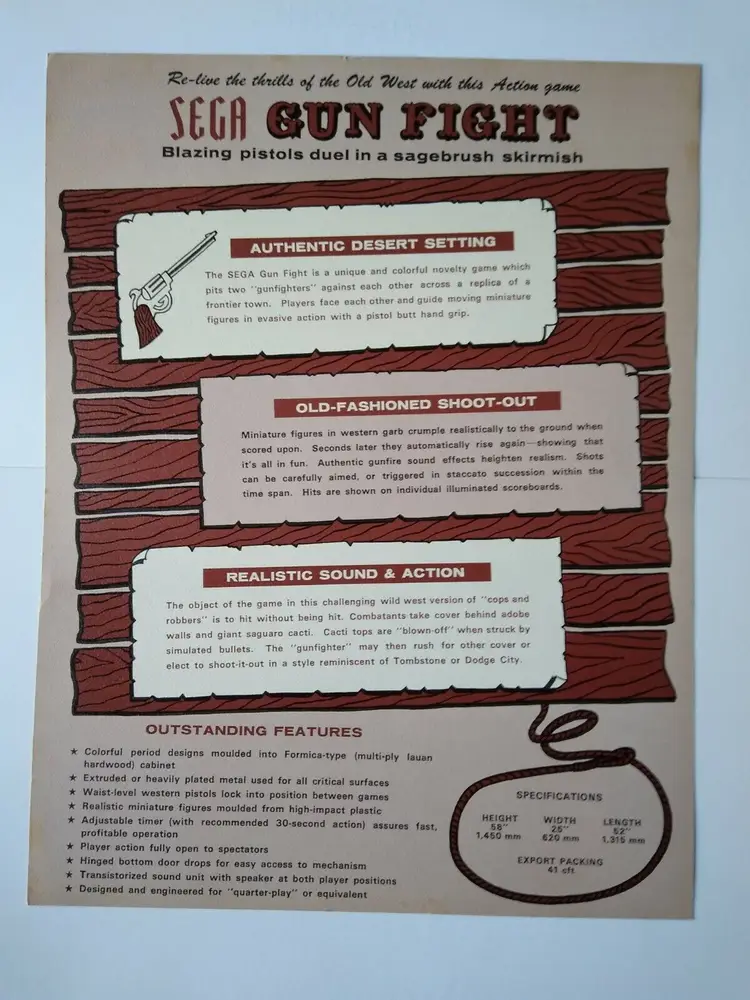 Re-live the thrills of the Old West with this Action game
SEGA GUN FIGHT
Blazing pistols duel in a sagebrush skirmish
AUTHENTIC DESERT SETTING
The SEGA Gun Fight is a unique and colorful novelty game which
pits two "gunfighters" against each other across a replica of a
frontier town. Players face each other and guide moving miniature
figures in evasive action with a pistol butt hand grip.
OLD-FASHIONED SHOOT-OUT
Miniature figures in western garb crumple realistically to the ground when
scored upon. Seconds later they automatically rise again—showing that
it's all in fun. Authentic gunfire sound effects heighten realism. Shots
can be carefully aimed, or triggered in staccato succession within the
time span. Hits are shown on individual illuminated scoreboards.
REALISTIC SOUND & ACTION
The object of the game in this challenging wild west version of "cops and
robbers" is to hit without being hit. Combatants take cover behind adobe
walls and giant saguaro cacti. Cacti tops are "blown-off" when struck by
simulated bullets. The "gunfighter" may then rush for other cover or
elect to shoot-it-out in a style reminiscent of Tombstone or Dodge City.
OUTSTANDING FEATURES
★ Colorful period designs moulded into Formica-type (multi-ply lauan
hardwood) cabinet
★ Extruded or heavily plated metal used for all critical surfaces
★ Waist-level western pistols lock into position between games
★ Realistic miniature figures moulded from high-impact plastic
★ Adjustable timer (with recommended 30-second action) assures fast,
profitable operation
★ Player action fully open to spectators
★ Hinged bottom door drops for easy access to mechanism
★ Transistorized sound unit with speaker at both player positions
★ Designed and engineered for "quarter-play" or equivalent
SPECIFICATIONS
HEIGHT WIDTH LENGTH
58" 25" 52"
1,450 mm 620 mm 1,315 mm
EXPORT PACKING
41 cft